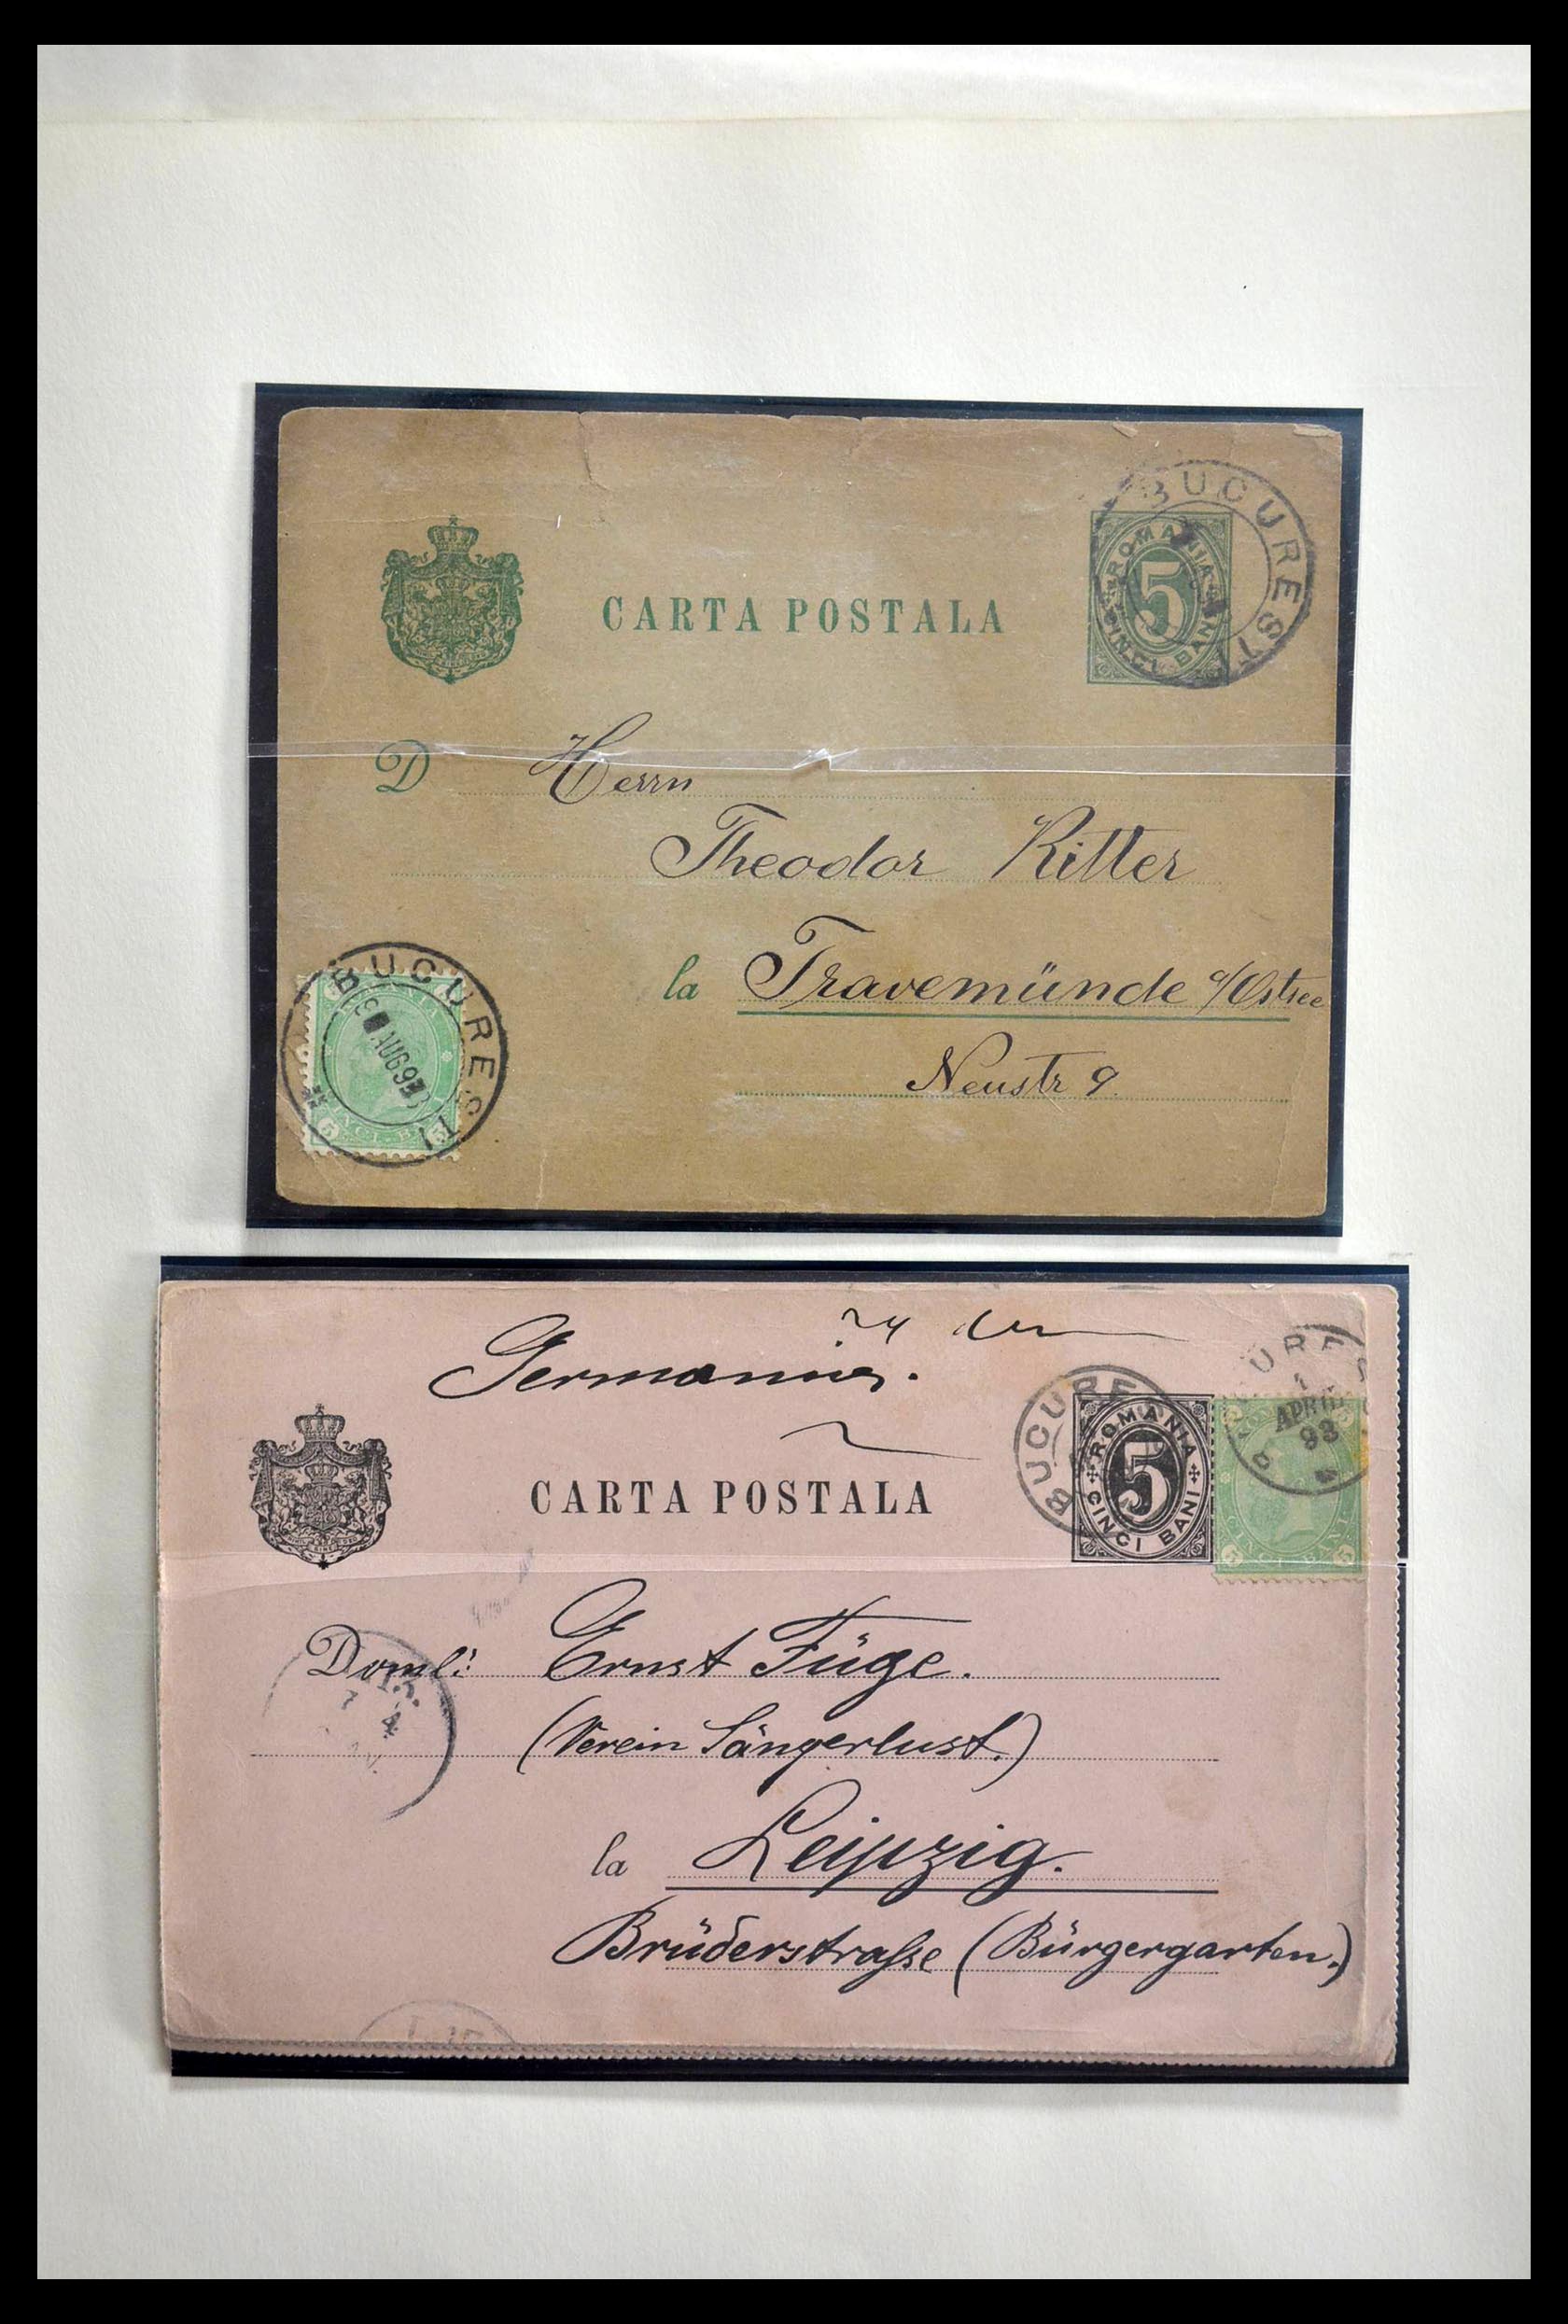 BUCURESTI
ROMANIA
5
CINCI BANI
CARTA POSTALA
D Herrn
Theodor Ritter
la Travemünde a/Ostsee
Neustr 9.
BUCURESTI
AUG 93
CINCI BANI
5 5
Germania.
BUCURE
ROMANIA
5
CINCI BANI
URES
1
APRIL
93
CINCI BANI
5 5
CARTA POSTALA
Domlui Ernst Füge.
(Verein Sängerlust.)
7
4
la Leipzig.
Brüderstraße (Bürgergarten.)